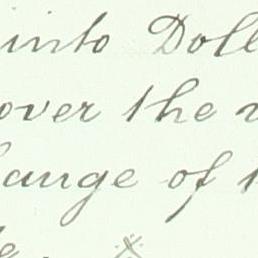 into Doll
over the
ange of